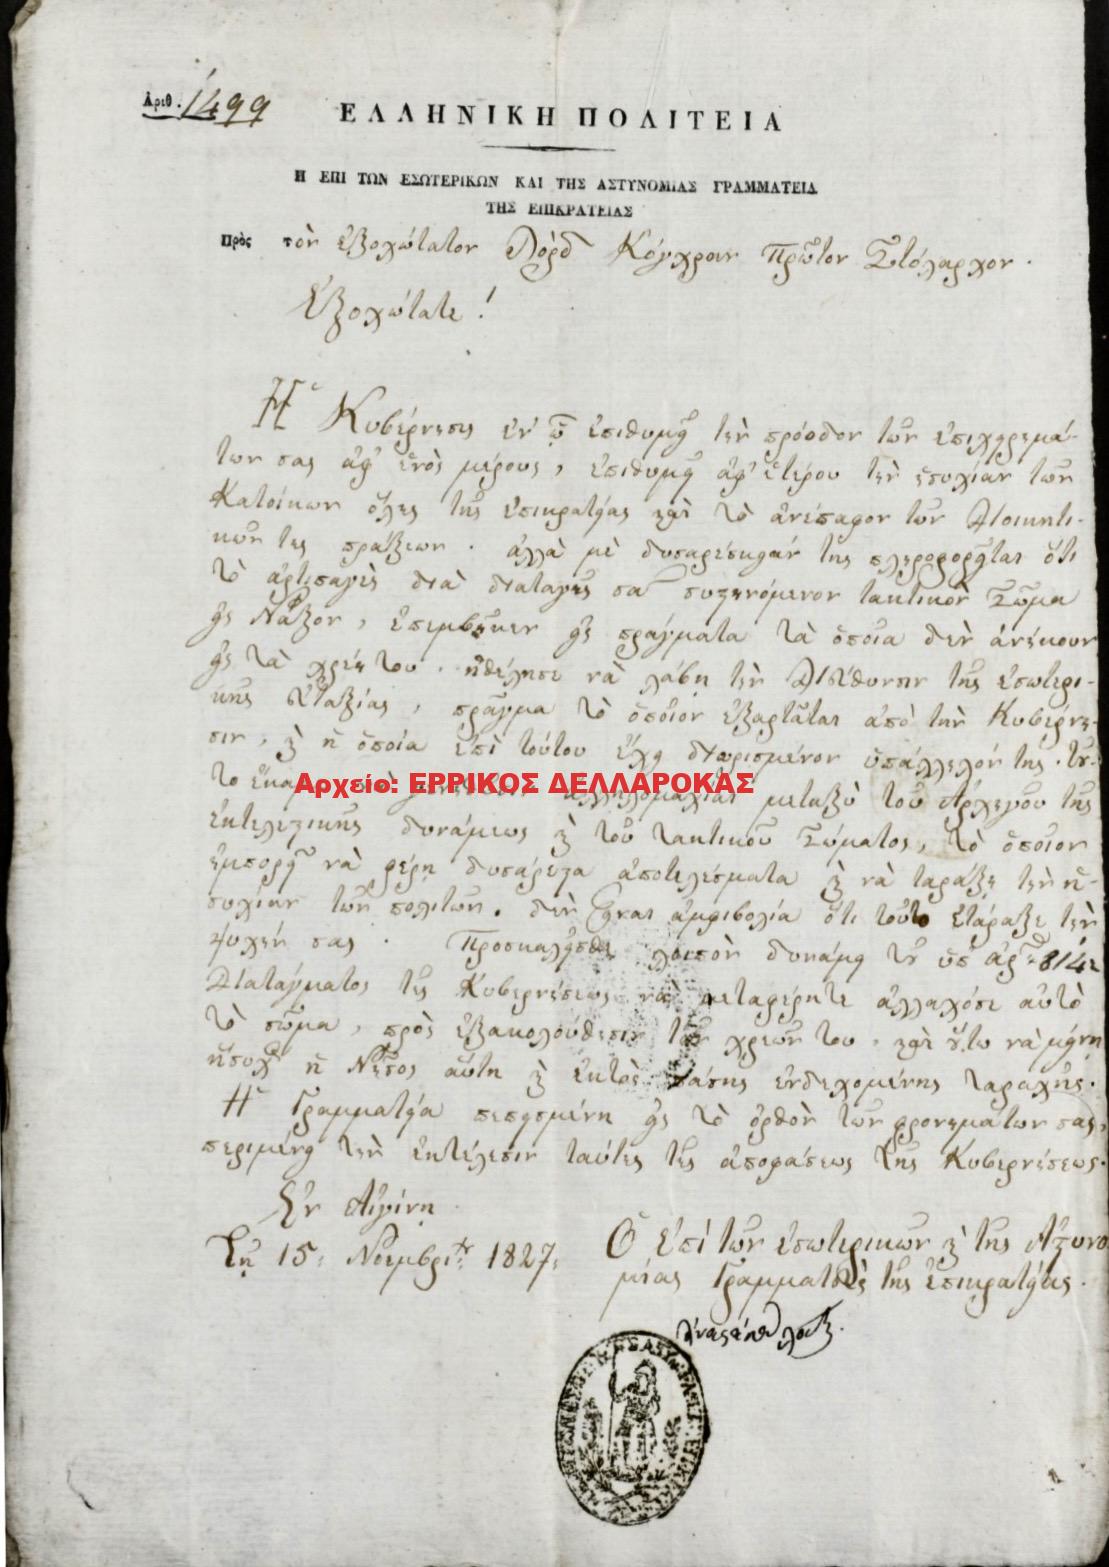 Ἀριθ. 1499
ΕΛΛΗΝΙΚΗ ΠΟΛΙΤΕΙΑ
Η ΕΠΙ ΤΩΝ ΕΣΩΤΕΡΙΚΩΝ ΚΑΙ ΤΗΣ ΑΣΤΥΝΟΜΙΑΣ ΓΡΑΜΜΑΤΕΙΑ
ΤΗΣ ΕΠΙΚΡΑΤΕΙΑΣ
Πρὸς τὸν ἐξοχώτατον Λόρδ Κόχραν Πρῶτον Στόλαρχον.
Ἐξοχώτατε!
Ἡ Κυβέρνησις ἐν ᾧ ἐπιθυμεῖ τὴν πρόοδον τῶν ἐπιχειρημά-
των σας ἀφ' ἑνὸς μέρους, ἐπιθυμεῖ ἀφ' ἑτέρου τὴν ἡσυχίαν τῶν
Κατοίκων ὅλης τῆς ἐπικρατείας καὶ τὸ ἀνέπαφον τῶν Διοικητι-
κῶν της πράξεων. ἀλλὰ μὲ δυσαρέσκειάν της πληροφορεῖται ὅτι
τὸ ἀρτιπαγὲς διὰ διαταγῆς σα συστηνόμενον τακτικὸν Σῶμα
εἰς Νάξον, ἐπεμβῆκεν εἰς πράγματα τὰ ὁποῖα δὲν ἀνήκουν
εἰς τὰ χρέη του. ἠθέλησε νὰ λάβῃ τὴν Διεύθυνσιν τῆς ἐσωτερι-
κῆς εὐταξίας, πρᾶγμα τὸ ὁποῖον ἐξαρτᾶται ἀπὸ τὴν Κυβέρνη-
σιν, ϗ ἡ ὁποία ἐπὶ τούτου ἔχει διωρισμένον ὑπάλληλόν της. τοῦ-
το Αρχείο: ΕΡΡΙΚΟΣ ΔΕΛΛΑΡΟΚΑΣ ἀλληλομαχίαι μεταξὺ τοῦ Ἀρχηγοῦ τῆς
ἐκτελεστικῆς δυνάμεως ϗ τοῦ τακτικοῦ Σώματος, τὸ ὁποῖον
ἐμπορεῖ νὰ φέρῃ δυσάρεστα ἀποτελέσματα ϗ νὰ ταράξῃ τὴν ἡ-
συχίαν τῶν πολιτῶν. δὲν εἶναι ἀμφιβολία ὅτι τοῦτο ἐτάραξε τὴν
ψυχήν σας. Προσκαλεῖσθε λοιπὸν δυνάμει τοῦ ὑπ' ἀρ. 814
Διατάγματος τῆς Κυβερνήσεως νὰ μεταφέρητε ἀλλαχόσε αὐτὸ
τὸ σῶμα, πρὸς ἐξακολούθησιν τῶν χρεῶν του, καὶ οὕτω νὰ μείνῃ
ἥσυχη ἡ Νῆσος αὕτη ϗ ἐκτὸς πάσης ἐνδεχομένης ταραχῆς.
Ἡ Γραμματεία πεπεισμένη εἰς τὸ ὀρθὸν τῶν φρονημάτων σας,
περιμένει τὴν ἐκτέλεσιν ταύτης τῆς ἀποφάσεως τῆς Κυβερνήσεως.
Ἐν Αἰγίνῃ
Τῇ 15, Νοεμβρίου 1827,
Ὁ ἐπὶ τῶν ἐσωτερικῶν ϗ τῆς Ἀστυνο
μίας Γραμματεὺς τῆς ἐπικρατείας.